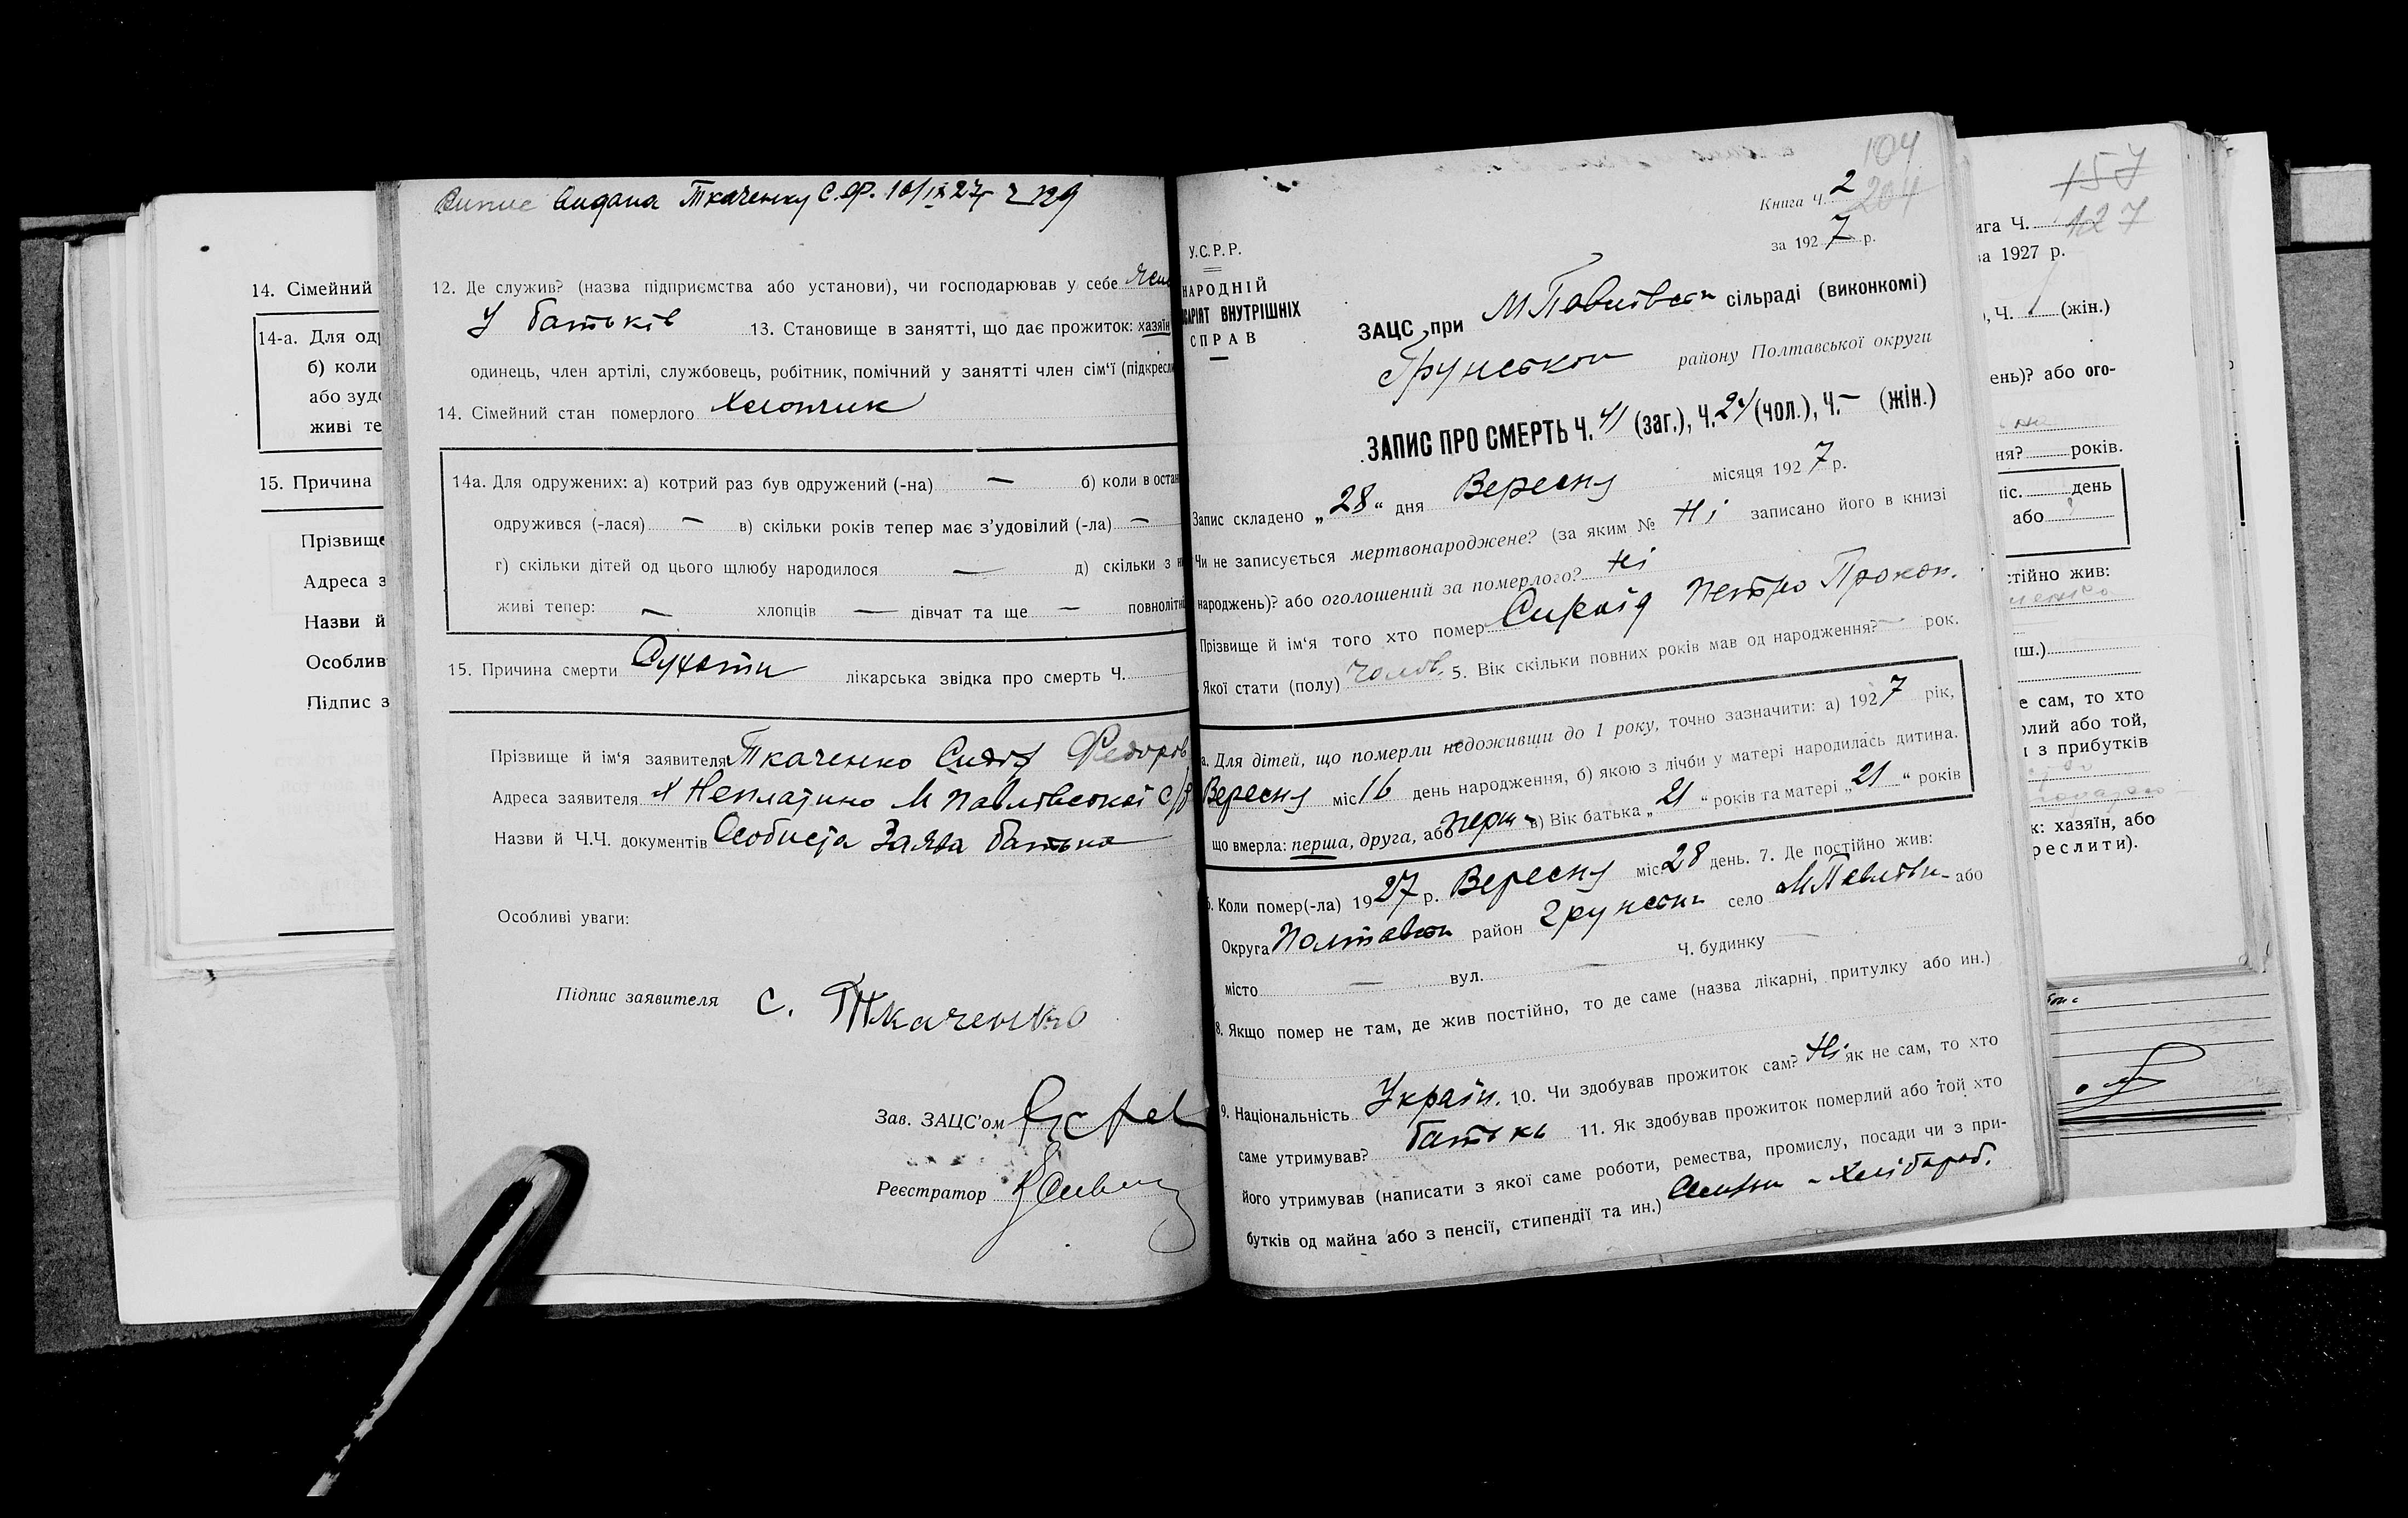 14. Сімейний
14-а. Для од
б) коли
або зуд
живі те
15. Причина
Прізвище
Адреса з
Назви й
Особлив
Підпис з
Випис видана Ткаченку С. Ф. 10/IX 27 129
12. Де служив? (назва підприємства або установи), чи господарював у себе
У батьків 13. Становище в занятті, що дає прожиток: хазяїн
одинець, член артілі, службовець, робітник, помічний у занятті член сім'ї (підкресли
14. Сімейний стан померлого Хлопчик
14а. Для одружених: а) котрий раз був одружений (-на) — б) коли в остан
одружився (-лася) — в) скільки років тепер має з'удовілий (-ла) —
г) скільки дітей од цього шлюбу народилося — д) скільки з н
живі тепер: — хлопців — дівчат та ще — повнолітні
15. Причина смерти Сухоти лікарська звідка про смерть Ч.
Прізвище й ім'я заявителя Ткаченко Сидор Федоров
Адреса заявителя х Неплатино М Павлівської с/р
Назви й Ч.Ч. документів Особиста Заява батька
Особливі уваги:
Підпис заявителя С. Ткаченко
Зав. ЗАЦС'ом
Реєстратор
104
204
Книга Ч. 2
за 1927 р.
У.С.Р.Р.
НАРОДНІЙ
САРІЯТ ВНУТРІШНІХ
СПРАВ
ЗАЦС при М Павлівськ сільраді (виконкомі)
Грунськом району Полтавської округи
ЗАПИС ПРО СМЕРТЬ Ч. 41 (заг.), Ч. 24 (чол.), Ч. — (жін.)
Запис складено „28“ дня Вересня місяця 1927 р.
Чи не записується мертвонароджене? (за яким № Ні записано його в книзі
народжень)? або оголошений за померлого? Ні
Прізвище й ім'я того хто помер Петро Прокоп.
Якої стати (полу) чолов. 5. Вік скільки повних років мав од народження? — рок.
а. Для дітей, що померли недоживши до 1 року, точно зазначити: а) 1927 рік,
Вересня міс 16 день народження, б) якою з лічби у матері народилась дитина.
що вмерла: перша, друга, або перш в) Вік батька „21“ років та матері „21“ років
6. Коли помер(-ла) 1927 р. Вересня міс. 28 день. 7. Де постійно жив:
Округа Полтавськ район Грунськ село М Павлівк або
місто — вул. — Ч. будинку —
8. Якщо помер не там, де жив постійно, то де саме (назва лікарні, притулку або ин.)
9. Національність Україн. 10. Чи здобував прожиток сам? Ні як не сам, то хто
саме утримував? батько 11. Як здобував прожиток померлий або той хто
його утримував (написати з якої саме роботи, ремества, промислу, посади чи з при-
бутків од майна або з пенсії, стипендії та ин.) Хлібороб.
157
127
ига Ч.
за 1927 р.
), Ч. (жін.)
ень)? або ого-
ня? років.
міс. день
або
стійно жив:
иш.)
е сам, то хто
рлий або той,
и з прибутків
к: хазяїн, або
реслити).